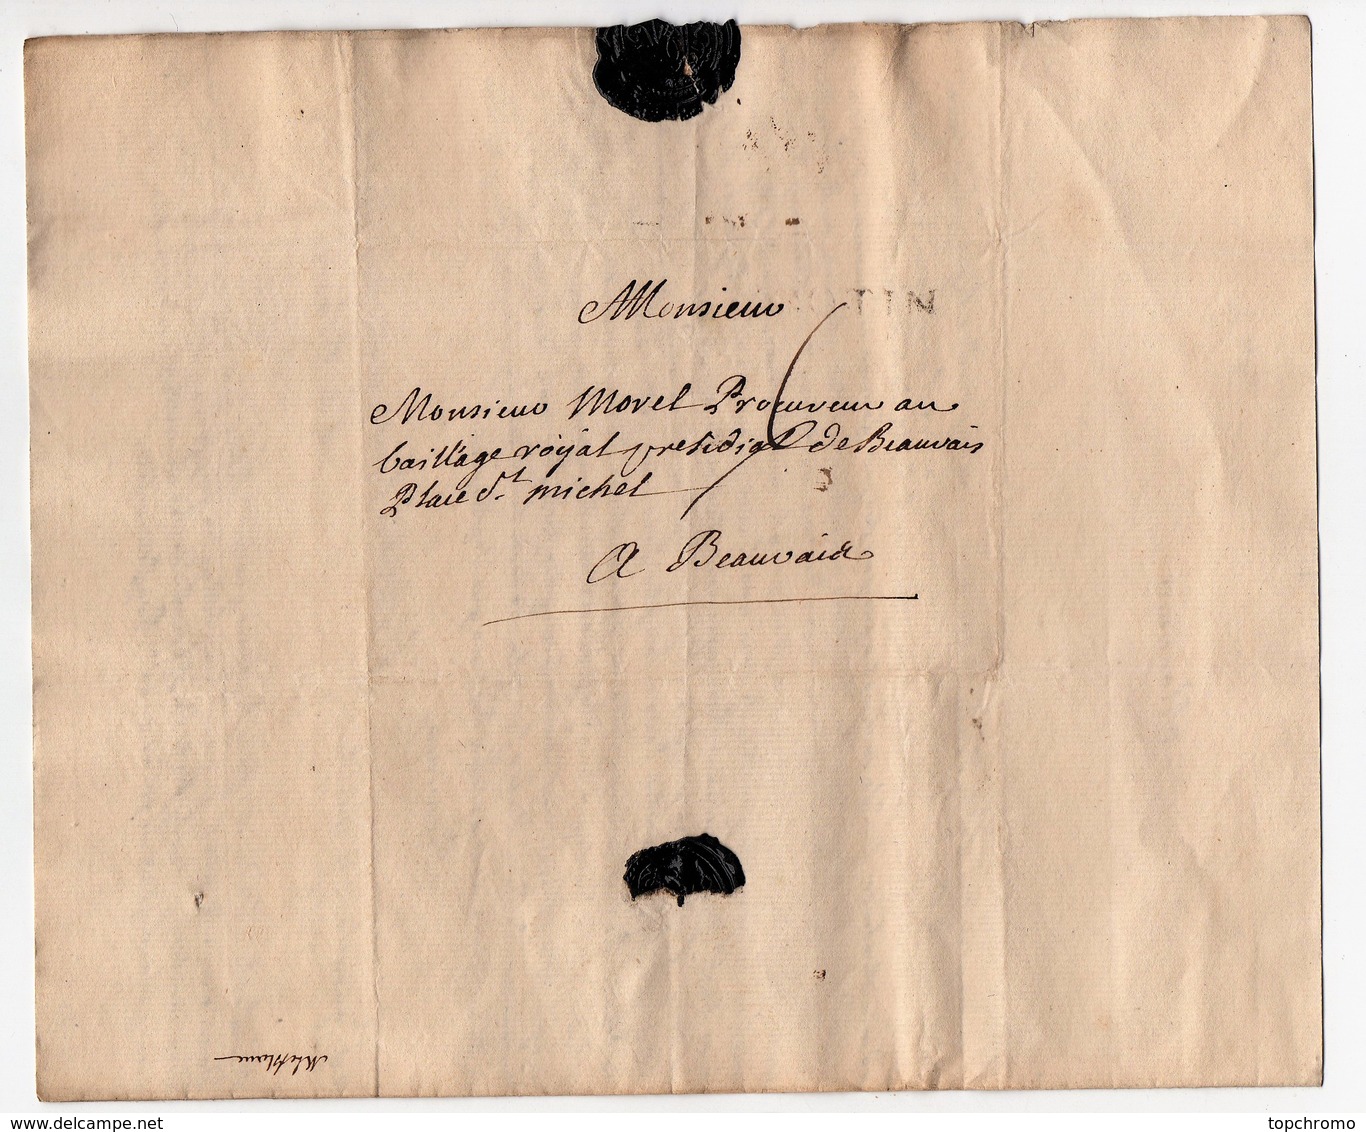 Monsieur
Monsieur Morel Procureur au
bailliage royal presidial de Beauvais
Place St. michel
A Beauvais
www.delcampe.net
topchromo